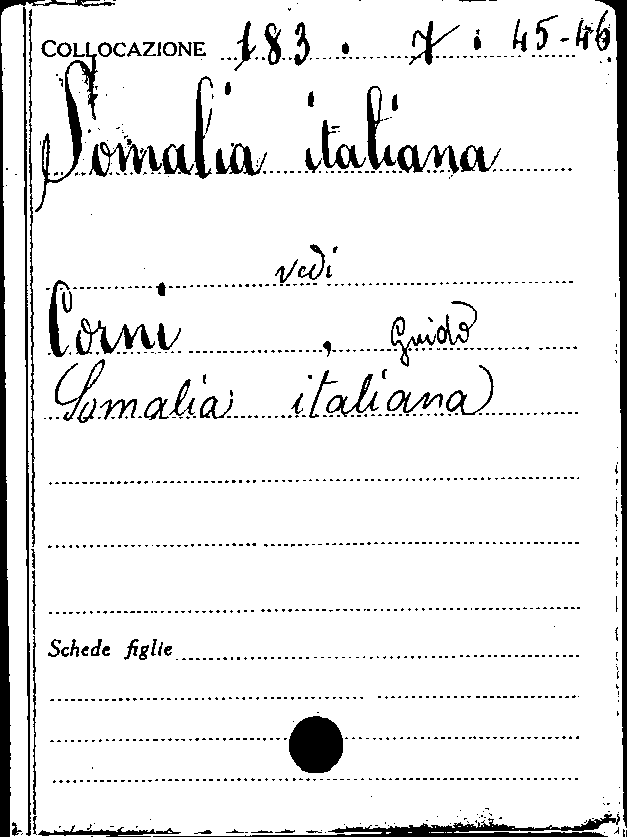 COLLOCAZIONE 183 . 7 . 45-46
Somalia italiana
vedi
Corni , Guido
Somalia italiana
Schede figlie